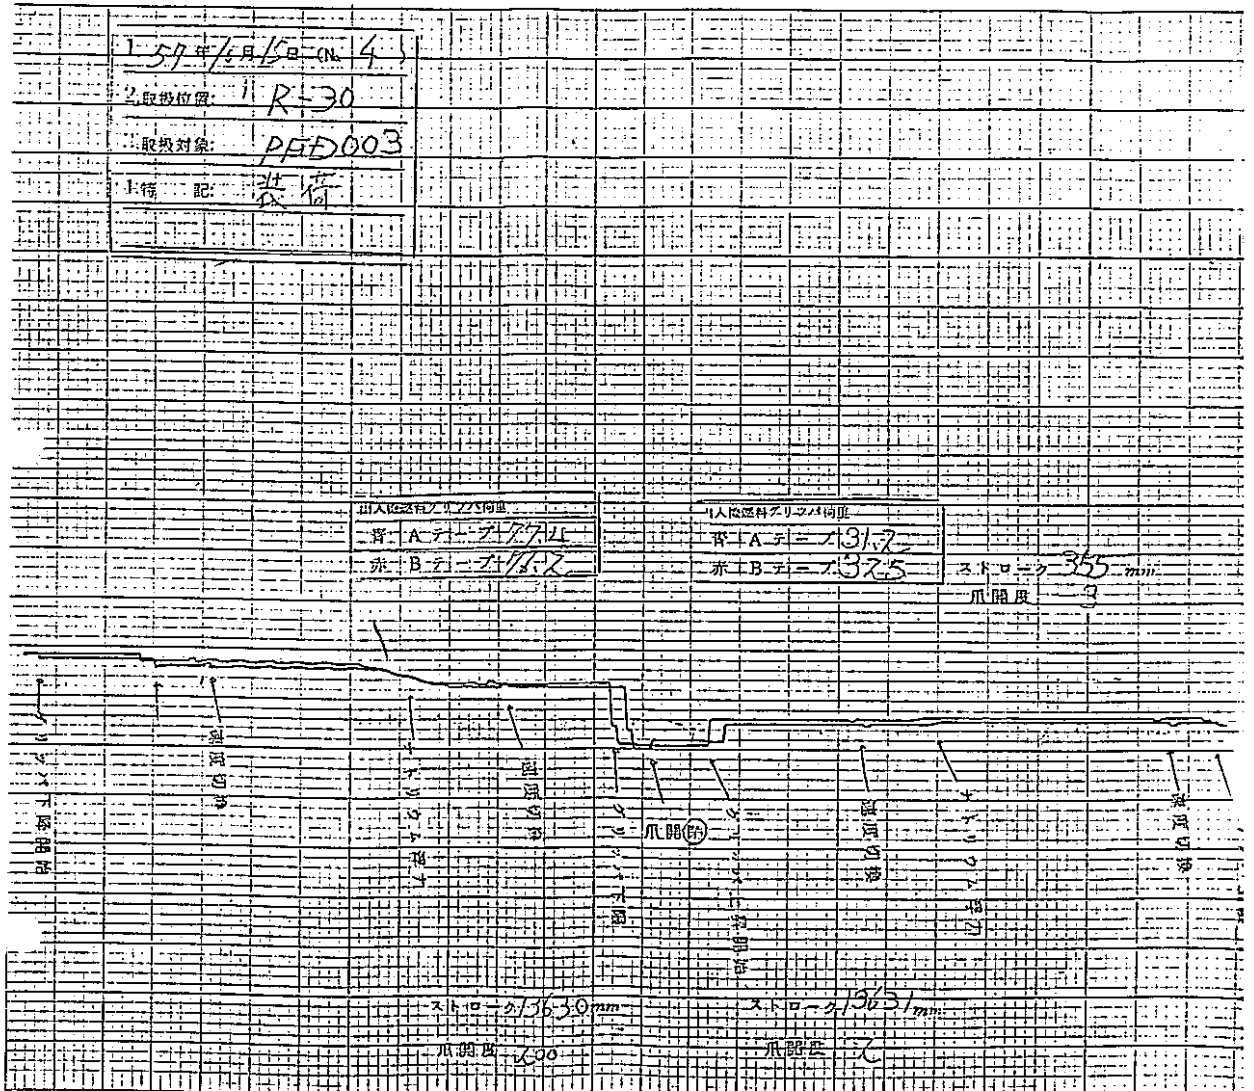 1. 57年 月15日 (No. 4)
2.取扱位置: R-30
取扱対象: PFD003
特 記: 装荷
出入機燃料グリッパ荷重
青 A テープ 77.4
赤 B テープ
出入機燃料グリッパ荷重
青 A テープ 31.7
赤 B テープ 32.5
ストローク 355 mm
爪開度 3
グリッパ下降開始
速度切換
ナトリウム浮力
速度切換
グリッパ下限
爪開閉
グリッパ上昇開始
速度切換
ナトリウム浮力
速度切換
ストローク 13630mm
爪開度 200
ストローク 13631mm
爪開度 2